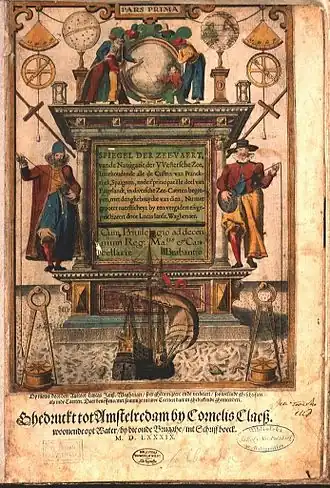 PARS PRIMA
SPIEGEL DER ZEEVAERT,
vande Navigatie der VVestersche Zee,
Innehoudende alle de Custen van Vranck-
rijck, Spaignen, ende t'principaelste deel van
Engelandt, in diversche Zee-Caerten begre-
pen, met den gebruijcke van dien, Nu met
grooter naersticheyt by een vergadert en ge-
practizeert door Lucas Iansz. Waghenaer.
Cum Privilegio ad decen-
nium Reg. Ma.tis et Can-
cellarie Brabantie
Ghedruckt tot Amstelredam by Cornelis Claesz.
woonende opt Water, by die oude Brugghe, int Schrijfboeck.
M. D. LXXXIX.